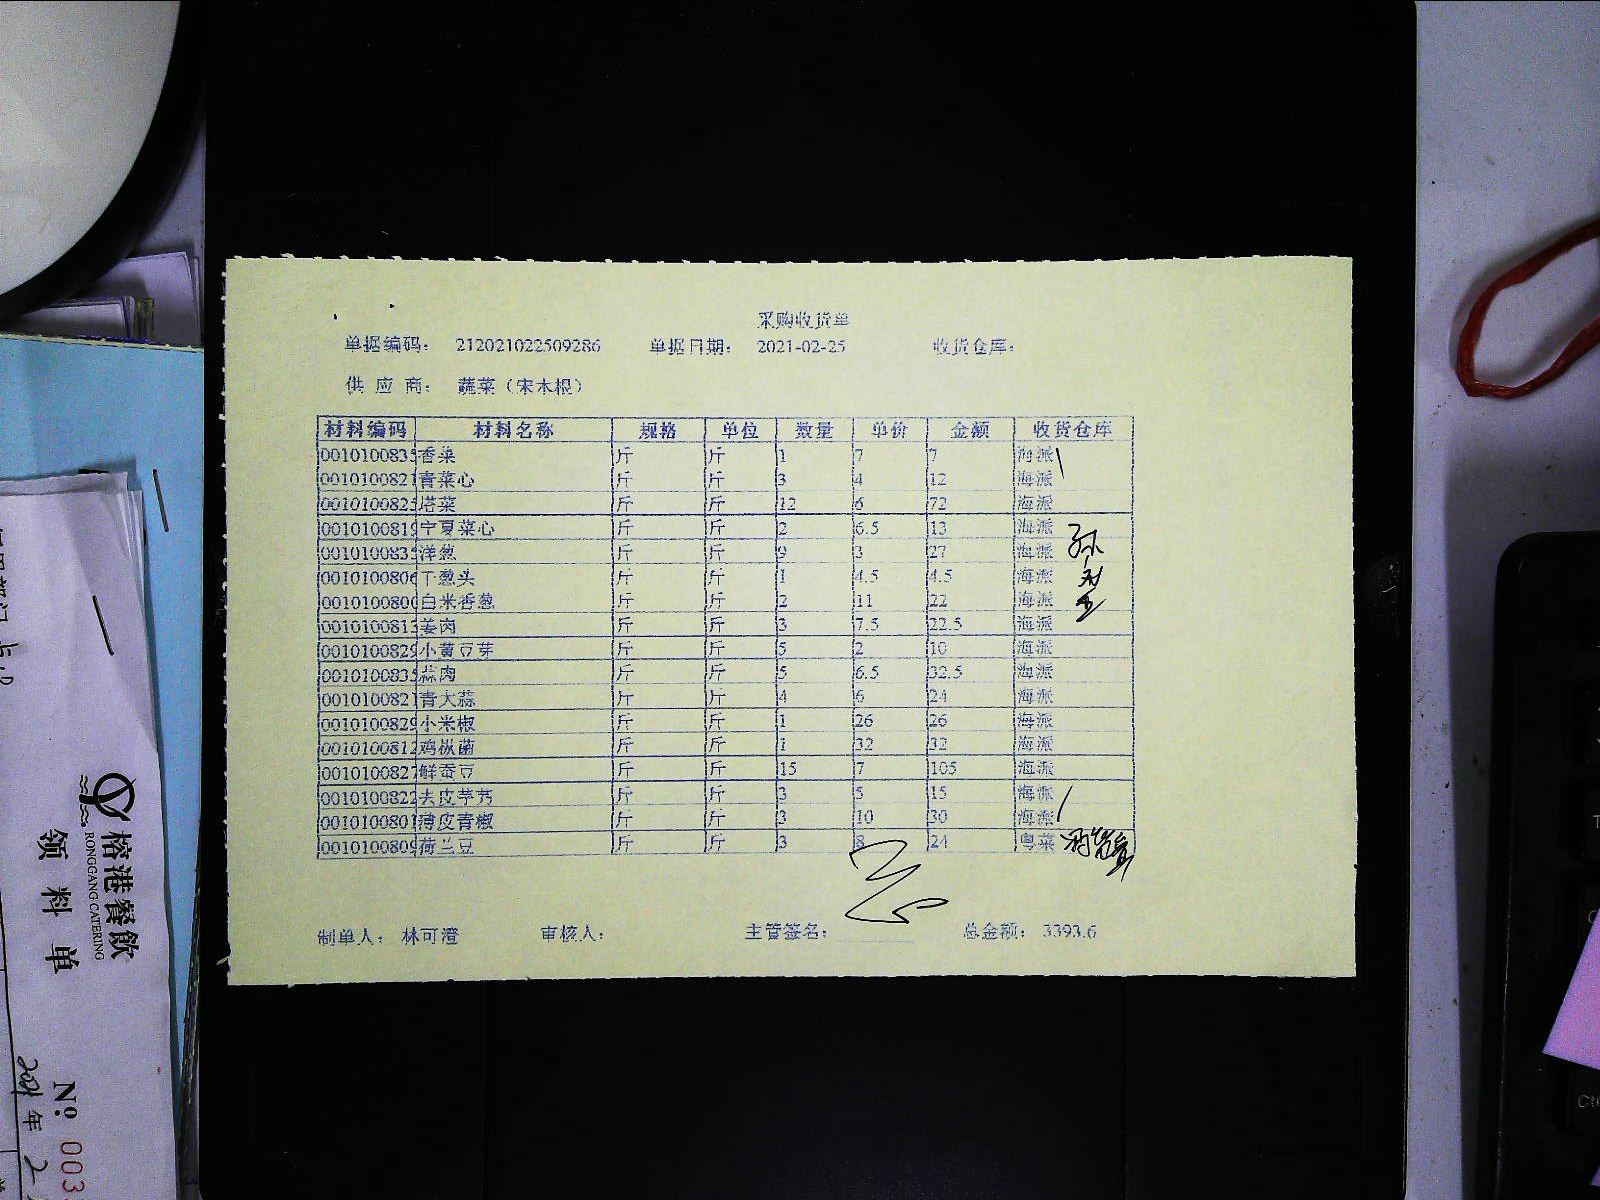 采购收货单
单据编码: 212021022509286 单据日期: 2021-02-25 收货仓库:
供应商: 蔬菜(宋本根)
材料编码 材料名称 规格 单位 数量 单价 金额 收货仓库
0010100835 香菜 斤 斤 1 7 7 海派
0010100821 青菜心 斤 斤 3 4 12 海派
0010100825 塔菜 斤 斤 12 6 72 海派
0010100819 宁夏菜心 斤 斤 2 6.5 13 海派
0010100835 洋葱 斤 斤 9 3 27 海派
0010100806 干葱头 斤 斤 1 4.5 4.5 海派
0010100800 白米香葱 斤 斤 2 11 22 海派
0010100813 姜肉 斤 斤 3 7.5 22.5 海派
0010100829 小黄豆芽 斤 斤 5 2 10 海派
0010100835 蒜肉 斤 斤 5 6.5 32.5 海派
0010100821 青大蒜 斤 斤 4 6 24 海派
0010100829 小米椒 斤 斤 1 26 26 海派
0010100812 鸡枞菌 斤 斤 1 32 32 海派
0010100827 鲜蚕豆 斤 斤 15 7 105 海派
0010100822 去皮芋艿 斤 斤 3 5 15 海派
0010100801 薄皮青椒 斤 斤 3 10 30 海派
0010100809 荷兰豆 斤 斤 3 8 24 粤菜
制单人: 林可澄 审核人: 主管签名: 总金额: 3393.6
榕港餐飲
RONGGANG·CATERING
领料单
№ 003
2021年2
Ctrl